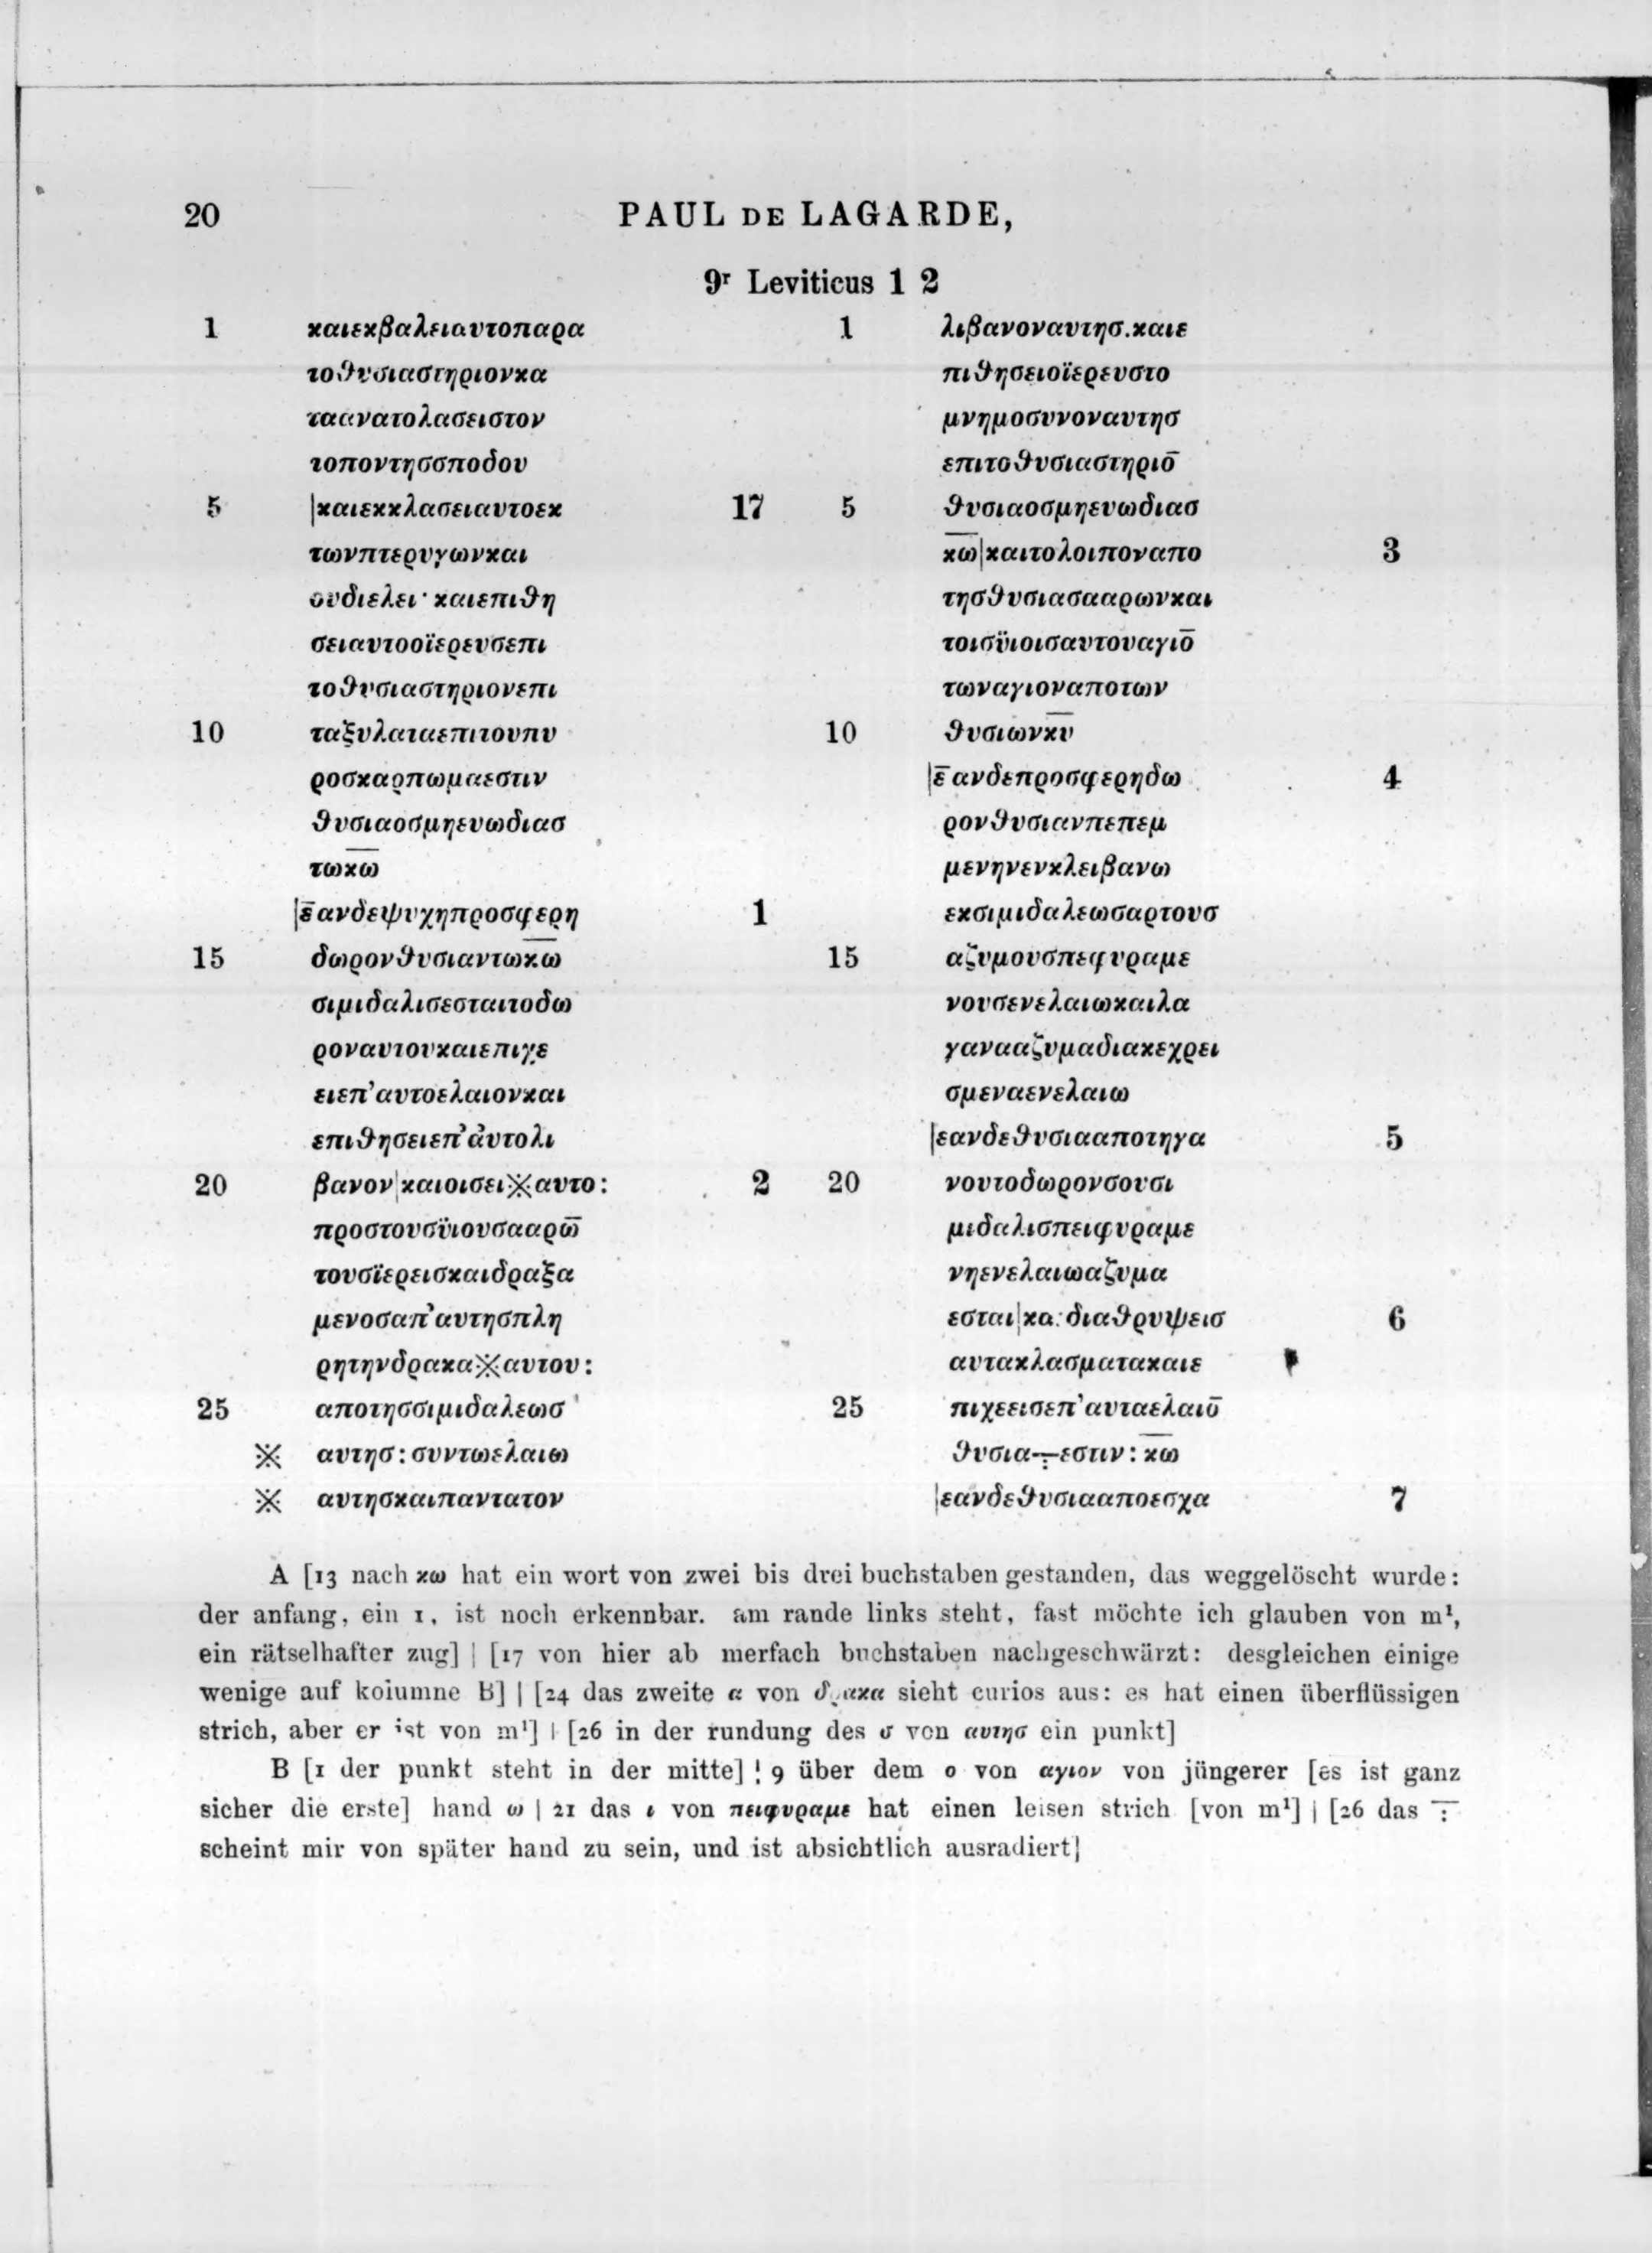 20 PAUL DE LAGARDE,
9ʳ Leviticus 1 2
1 καιεκβαλειαυτοπαρα
τοθυσιαστηριονκα
ταανατολασειστον
τοποντησσποδου
5 |καιεκκλασειαυτοεκ 17
τωνπτερυγωνκαι
ουδιελει· καιεπιθη
σειαυτοοϊερευσεπι
τοθυσιαστηριονεπι
10 ταξυλαταεπιτουπυ
ροσκαρπωμαεστιν
θυσιαοσμηευωδιασ
τωκ̅ω̅
|ε̅ανδεψυχηπροσφερη 1
15 δωρονθυσιαντωκ̅ω̅
σιμιδαλισεσταιτοδω
ροναυτουκαιεπιχε
ειεπ’αυτοελαιονκαι
επιθησειεπ’ἀυτολι
20 βανον|καιοισει※αυτο: 2
προστουσϋιουσααρω̅
τουσϊερεισκαιδραξα
μενοσαπ’αυτησπλη
ρητηνδρακα※αυτου:
25 αποτησσιμιδαλεωσ
※ αυτησ:συντωελαιω
※ αυτησκαιπαντατον
1 λιβανοναυτησ.καιε
πιθησειοϊερευστο
μνημοσυνοναυτησ
επιτοθυσιαστηριο̅
5 θυσιαοσμηευωδιασ
κ̅ω̅|καιτολοιποναπο 3
τησθυσιασααρωνκαι
τοισϋιοισαυτουαγιο̅
τωναγιοναποτων
10 θυσιωνκ̅υ̅
|ε̅ανδεπροσφερηδω 4
ρονθυσιανπεπεμ
μενηνενκλειβανω
εκσιμιδαλεωσαρτουσ
15 αζυμουσπεφυραμε
νουσενελαιωκαιλα
γανααζυμαδιακεχρει
σμεναενελαιω
|εανδεθυσιααποτηγα 5
20 νουτοδωρονσουσι
μιδαλισπειφυραμε
νηενελαιωαζυμα
εσται|κα:διαθρυψεισ 6
αυτακλασματακαιε
25 πιχεεισεπ’αυταελαιο̅
θυσια⸓εστιν:κ̅ω̅
|εανδεθυσιααποεσχα 7
A [13 nach κω hat ein wort von zwei bis drei buchstaben gestanden, das weggelöscht wurde:
der anfang, ein ι, ist noch erkennbar. am rande links steht, fast möchte ich glauben von m¹,
ein rätselhafter zug] | [17 von hier ab merfach buchstaben nachgeschwärzt: desgleichen einige
wenige auf kolumne B] | [24 das zweite α von δρακα sieht curios aus: es hat einen überflüssigen
strich, aber er ist von m¹] | [26 in der rundung des σ von αυτησ ein punkt]
B [1 der punkt steht in der mitte] | 9 über dem ο von αγιον von jüngerer [es ist ganz
sicher die erste] hand ω | 21 das ι von πειφυραμε hat einen leisen strich [von m¹] | [26 das ⸓
scheint mir von später hand zu sein, und ist absichtlich ausradiert]